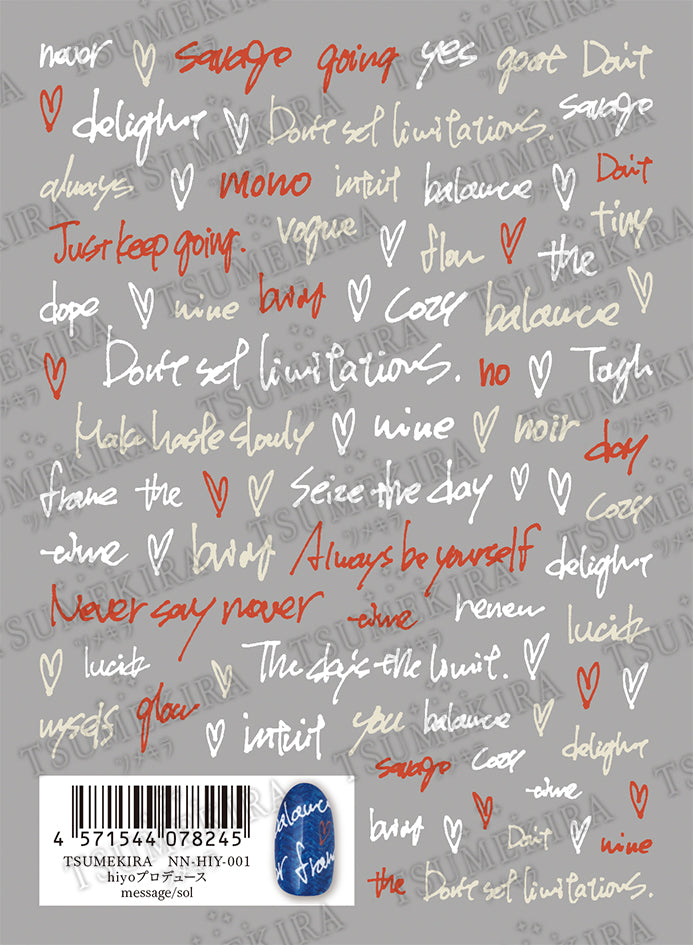 never savage going yes goat Don't
delight Don't set limitations. savage
always mono intuit balance Don't
Just keep going. vogue flow the tiny
dope nine burst cozy balance
Don't set limitations. no Tagh
Make haste slowly nine noir day
frame the Seize the day cozy
time burst Always be yourself delight
Never say never time renew lucid
lucid The sky's the limit.
myself glow intuit you balance delight
savage cozy
time
burst Don't nine
the Don't set limitations.
balance
frame
4 571544 078245
TSUMEKIRA NN-HIY-001
hiyoプロデュース
message/sol
TSUMEKIRA
ツメキラ